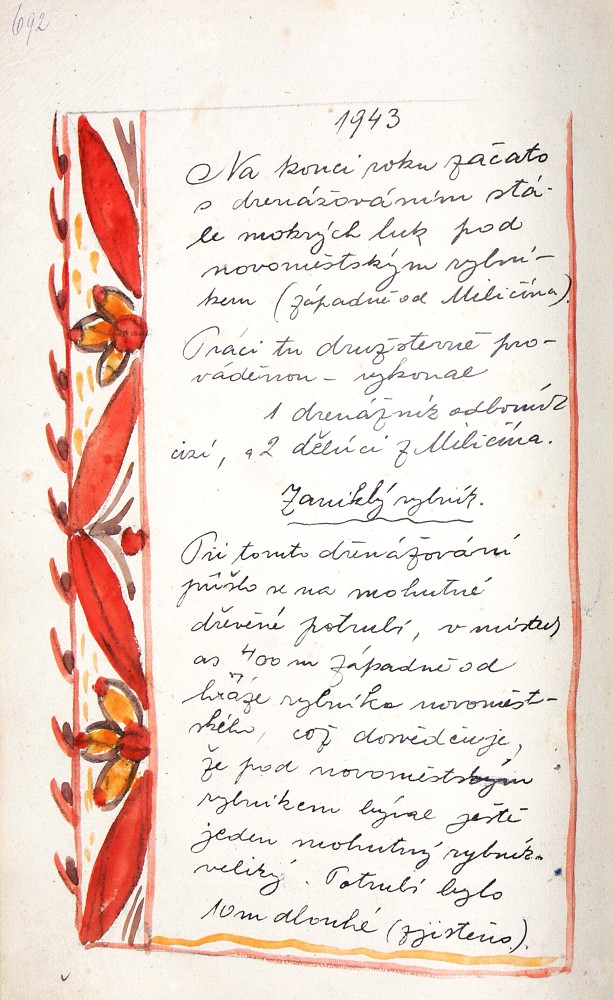 692
1943
Na konci roku začato
s drenážováním stá-
le mokrých luk pod
novoměstským rybní-
kem (západně od Miličína).
Práci tu družstevně pro-
váděnou – vykonal
1 drenážník odborník
cizí, a 2 dělníci z Miličína.
Zaniklý rybník.
Při tomto drenážování
přišlo se na mohutné
dřevěné potrubí, v místech
as 400 m západně od
hráze rybníka novoměst-
ského, což dosvědčuje,
že pod novoměstským
rybníkem býval ještě
jeden mohutný rybník
veliký. Potrubí bylo
10 m dlouhé (zjištěno).